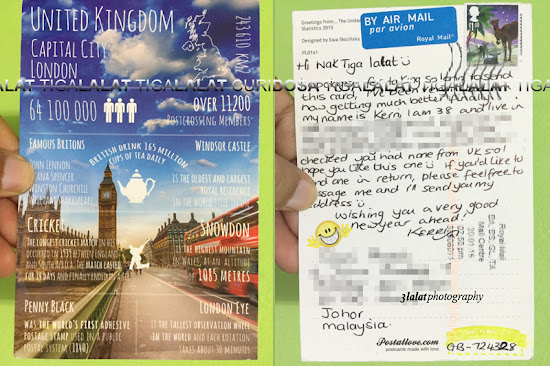 UNITED KINGDOM
CAPITAL CITY
LONDON
64 100 000
OVER 11200
POSTCROSSING MEMBERS
FAMOUS BRITONS
JOHN LENNON
DIANA SPENCER
WINSTON CHURCHILL
WILLIAM SHAKESPEARE
BRITISH DRINK 165 MILLION
CUPS OF TEA DAILY
WINDSOR CASTLE
IS THE OLDEST AND LARGEST
ROYAL RESIDENCE
IN THE WORLD
CRICKET
THE LONGEST CRICKET MATCH
OCCURED IN 1939 BETWEEN ENGLAND
AND SOUTH AFRICA. THE MATCH LASTED
SNOWDON
IS THE HIGHEST MOUNTAIN
IN WALES, AT AN ALTITUDE
OF
1085 METRES
PENNY BLACK
WAS THE WORLD'S FIRST ADHESIVE
POSTAGE STAMP USED IN A PUBLIC
POSTAL SYSTEM (1840)
LONDON EYE
IS THE TALLEST OBSERVATION WHEEL
IN THE WORLD AND EACH ROTATION
TAKES ABOUT 30 MINUTES
TIGALALAT TIGALALAT TIGALALAT
Greetings from... The United
Statistics 2015
Designed by Ewa
PL01a1
BY AIR MAIL
par avion
Royal Mail
Hi Nak Tiga lalat
for taking so long to send
this card, I've
now getting much better
my name is Kerri I am 38 and live in
checked you had none from UK so I
hope you like this one if you'd like to
send one in return, please feel free to
message me and I'll send you my
address
wishing you a very good
new year ahead!
Royal Mail
Mail Centre
20.01.16
3lalatphotography
Johor
malaysia.
Postallove.com
postcards made with love
GB-724328